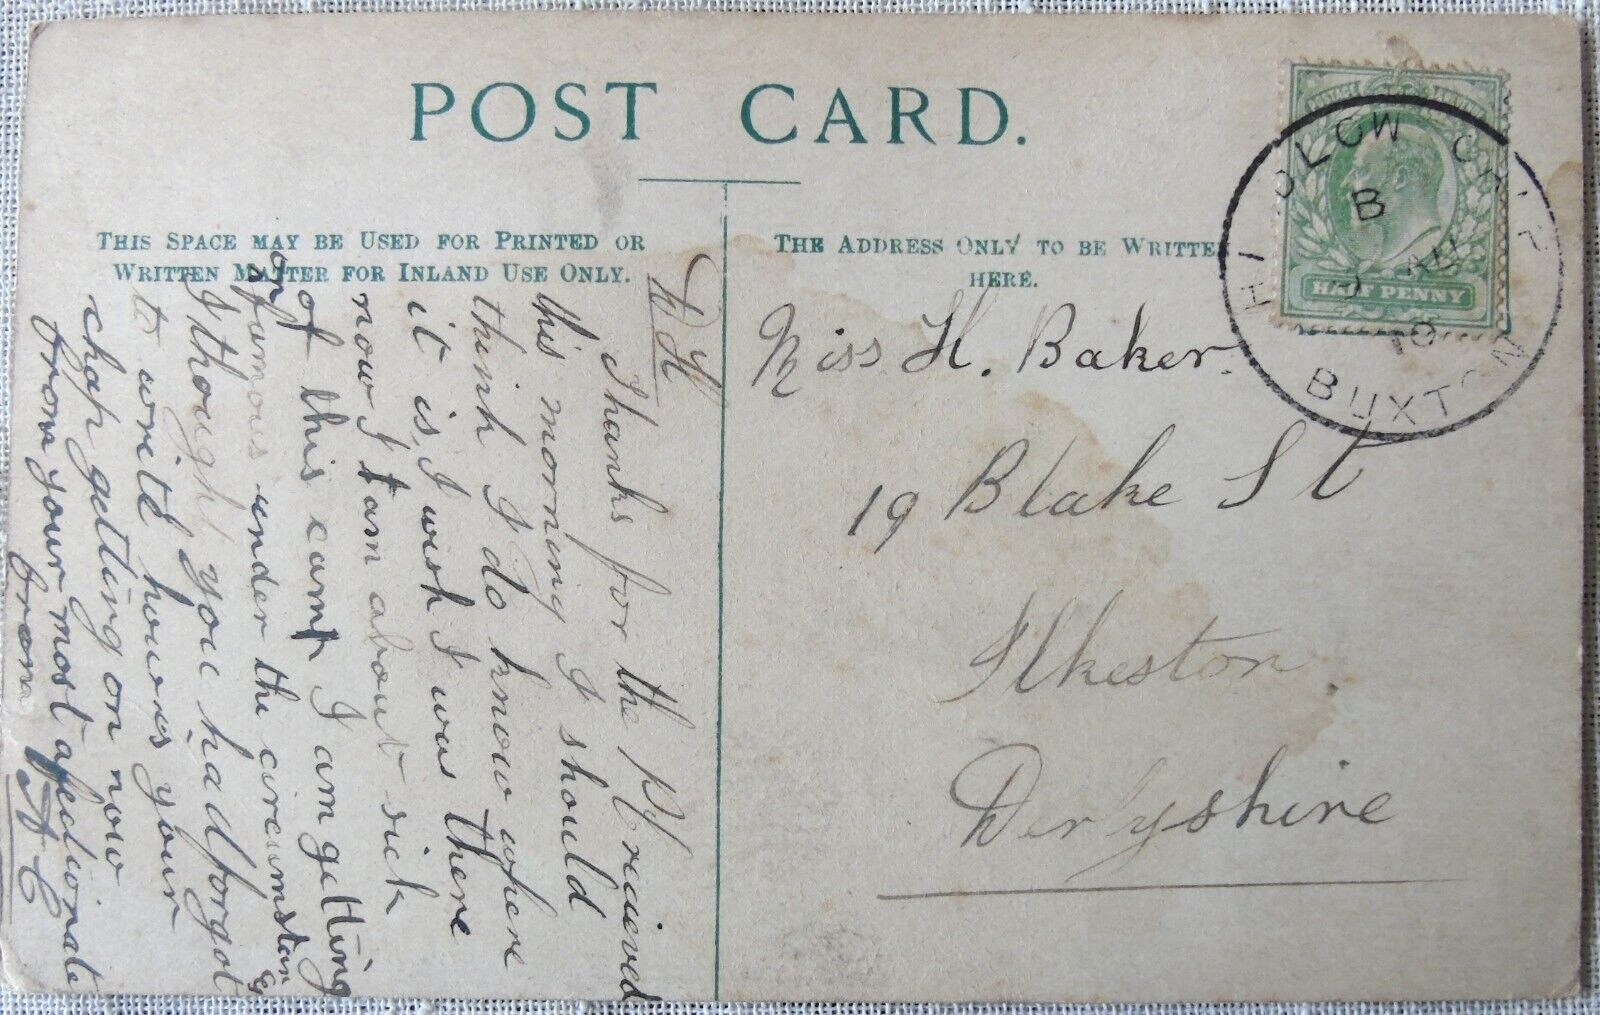 POST CARD.
THIS SPACE MAY BE USED FOR PRINTED OR
WRITTEN MATTER FOR INLAND USE ONLY.
THE ADDRESS ONLY TO BE WRITTE
HERE.
POSTAGE
HALF PENNY
B
AU
10
BUXTON
Miss H. Baker.
19 Blake St
Ilkeston
Derbyshire
D H
Thanks for the P/C recieved
this morning I should
think I do know where
it is, I wish I was there
now I am about sick
of this camp I am getting
on famous under the circumstances
I thought you had forgot
to write hows your
chap getting on now
from your most afectionate
A C